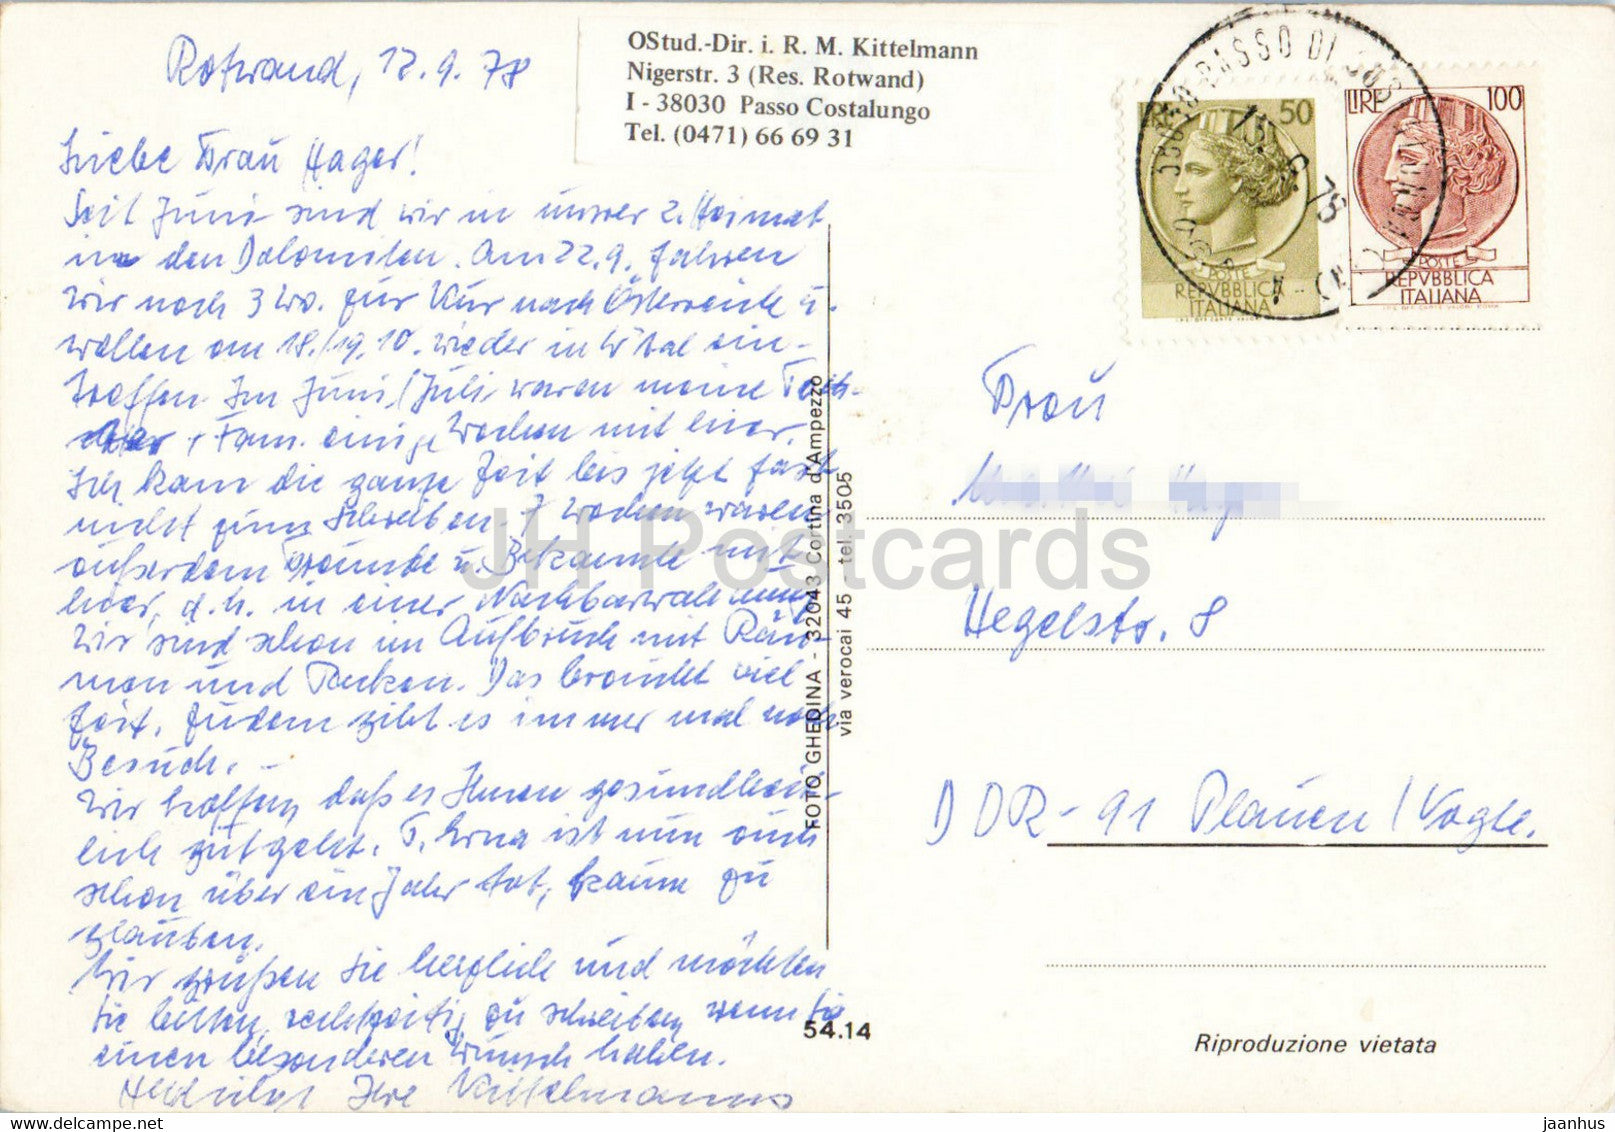 Rotwand, 12.9.78
OStud.-Dir. i. R. M. Kittelmann
Nigerstr. 3 (Res. Rotwand)
I - 38030 Passo Costalungo
Tel. (0471) 66 69 31
Liebe Frau Hager!
Seit Juni sind wir in unsrer 2. Heimat
in den Dolomiten. Am 22.9. fahren
wir noch 3 Wo. zur Kur nach Österreich u.
wollen am 18./19.10. wieder in W'tal ein-
treffen. Im Juni/Juli waren meine Toch-
ter + Fam. einige Wochen mit hier.
Ich kam die ganze Zeit bis jetzt fast
nicht zum Schreiben. 7 Wochen waren
außerdem Freunde u. Bekannte mit
hier, d.h. in einer Nachbarwohnung
Wir sind schon im Aufbruch mit Räu-
men und Packen. Das braucht viel
Zeit. Zudem gibt es immer mal noch
Besuch. -
Wir hoffen, daß es Ihnen gesundheit-
lich gut geht. T. Erna ist nun auch
schon über ein Jahr tot, kaum zu
glauben.
Wir grüßen Sie herzlich und möchten
Sie bitten, rechtzeitig zu schreiben, wenn Sie
einen besonderen Wunsch haben.
Herzlichst Ihre Kittelmanns
FOTO GHEDINA - 32043 Cortina d'Ampezzo
via verocai 45 - tel. 3505
54.14
LIRE 50
POSTE
REPVBBLICA
ITALIANA
LIRE 100
POSTE
REPVBBLICA
ITALIANA
PASSO DI COS
78
Frau
Hegelstr. 8
DDR-91 Plauen/Vogtl.
Riproduzione vietata
JH Postcards
www.delcampe.net
jaanhus